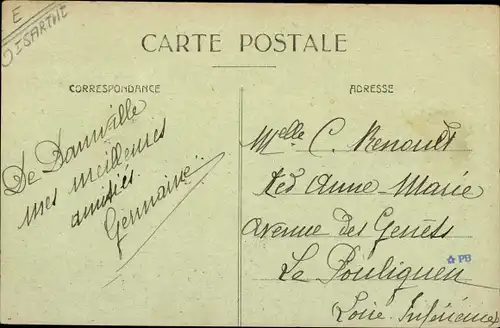 E
OISARTHE
CARTE POSTALE
CORRESPONDANCE
ADRESSE
De Damville
mes meilleures
amitiés.
Germaine.
Melle C. Renoult
Ked Anne Marie
avenue des Genêts
PB
Le Pouliguen
Loire Inférieure